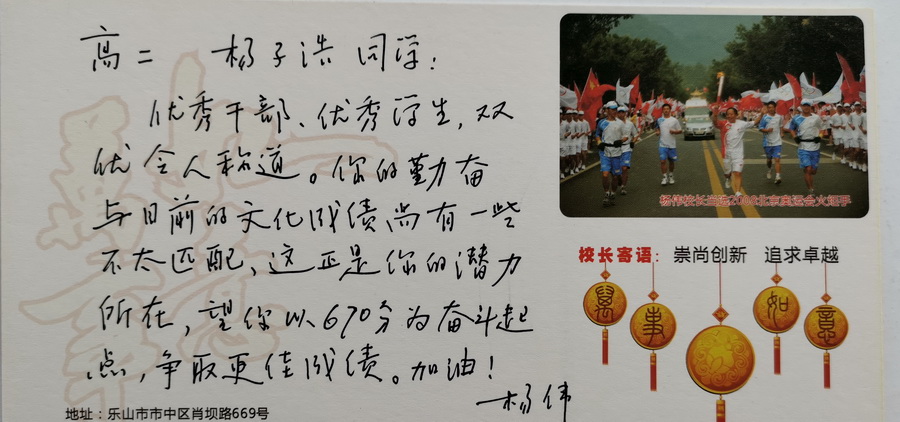 高二 杨子浩同学:
优秀干部、优秀学生,双
优令人称道。你的勤奋
与目前的文化成绩尚有一些
不太匹配,这正是你的潜力
所在,望你以670分为奋斗起
点,争取更佳成绩。加油!
杨伟
地址:乐山市市中区肖坝路669号
杨伟校长当选2008北京奥运会火炬手
校长寄语: 崇尚创新 追求卓越
万事如意